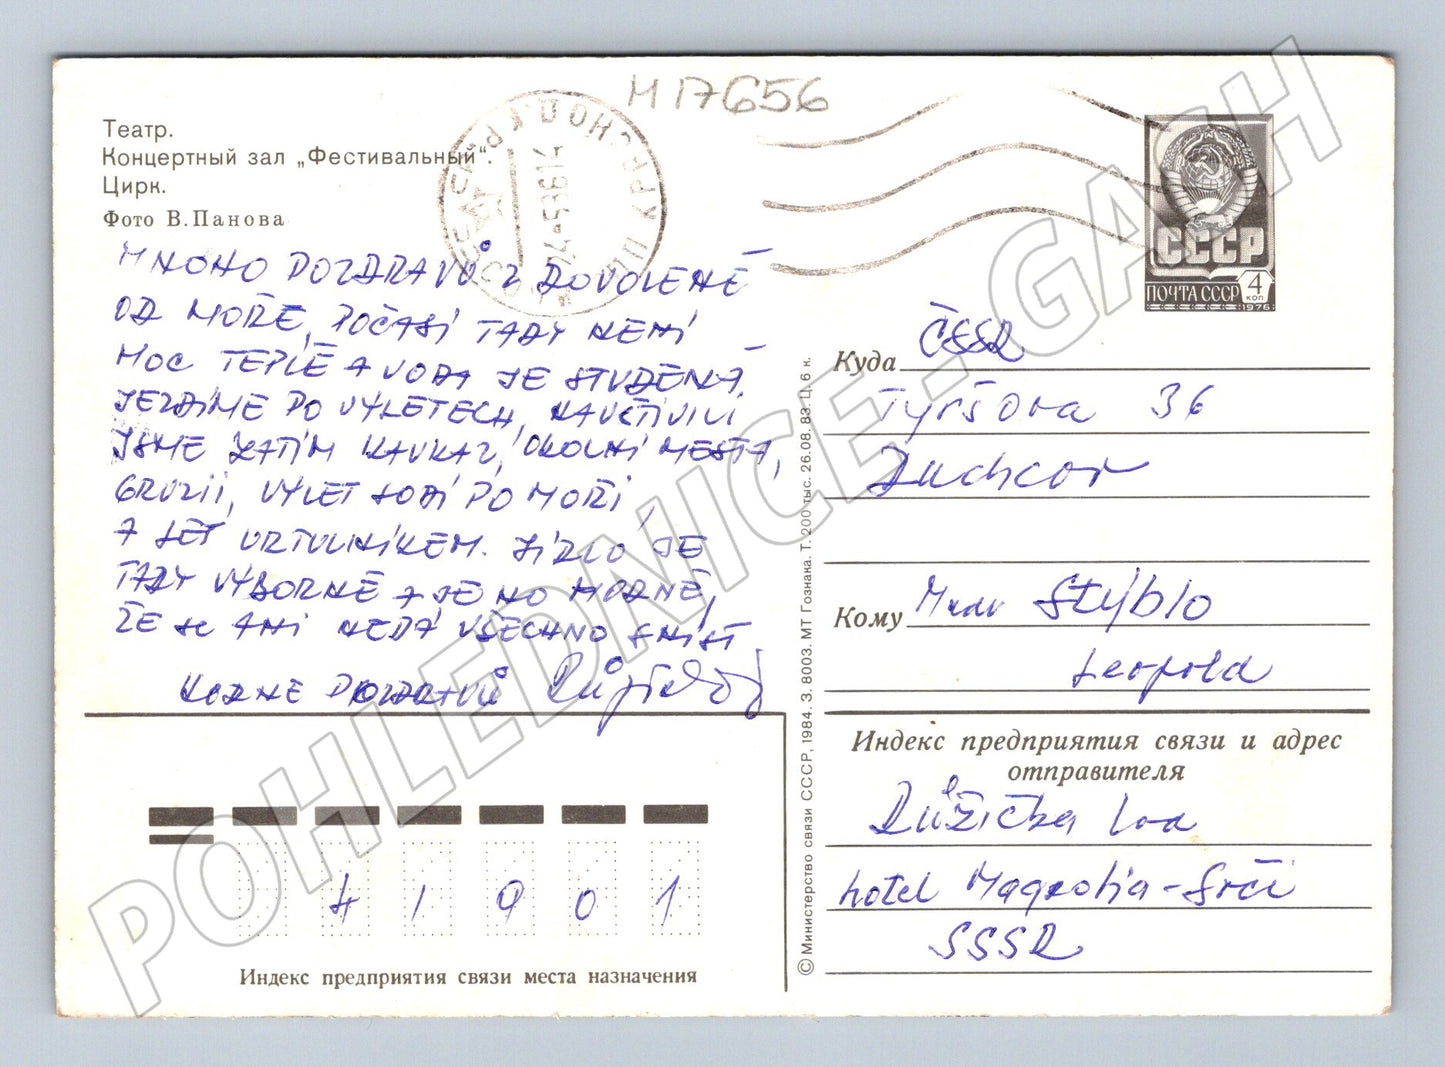 М 17656
Театр.
Концертный зал „Фестивальный“.
Цирк.
Фото В.Панова
СССР
ПОЧТА СССР 4 коп
1976
MNOHO POZDRAVŮ Z DOVOLENÉ
OD MOŘE, POČASÍ TADY NENÍ
MOC TEPLÉ A VODA JE STUDENÁ,
JEZDÍME PO VÝLETECH, NAVŠTÍVILI
JSME ZATÍM KAVKAZ, OKOLNÍ MĚSTA,
GRUZII, VÝLET LODÍ PO MOŘI,
A LET VRTULNÍKEM. JÍDLO JE
TADY VÝBORNÉ A JE HO HODNĚ,
ŽE SE ANI NEDÁ VŠECHNO SNÍST
Куда ČSSR
Tyršova 36
Duchcov
Кому Mudr Stýblo
Leopold
Индекс предприятия связи и адрес
отправителя
Růžička Iva
hotel Magnolia - Soči
SSSR
41901
Индекс предприятия связи места назначения
© Министерство связи СССР, 1984. З. 8003. МТ Гознака. Т. 200 тыс. 26.08. 83. Ц. 6 к.
POHLEDNICE-GASH